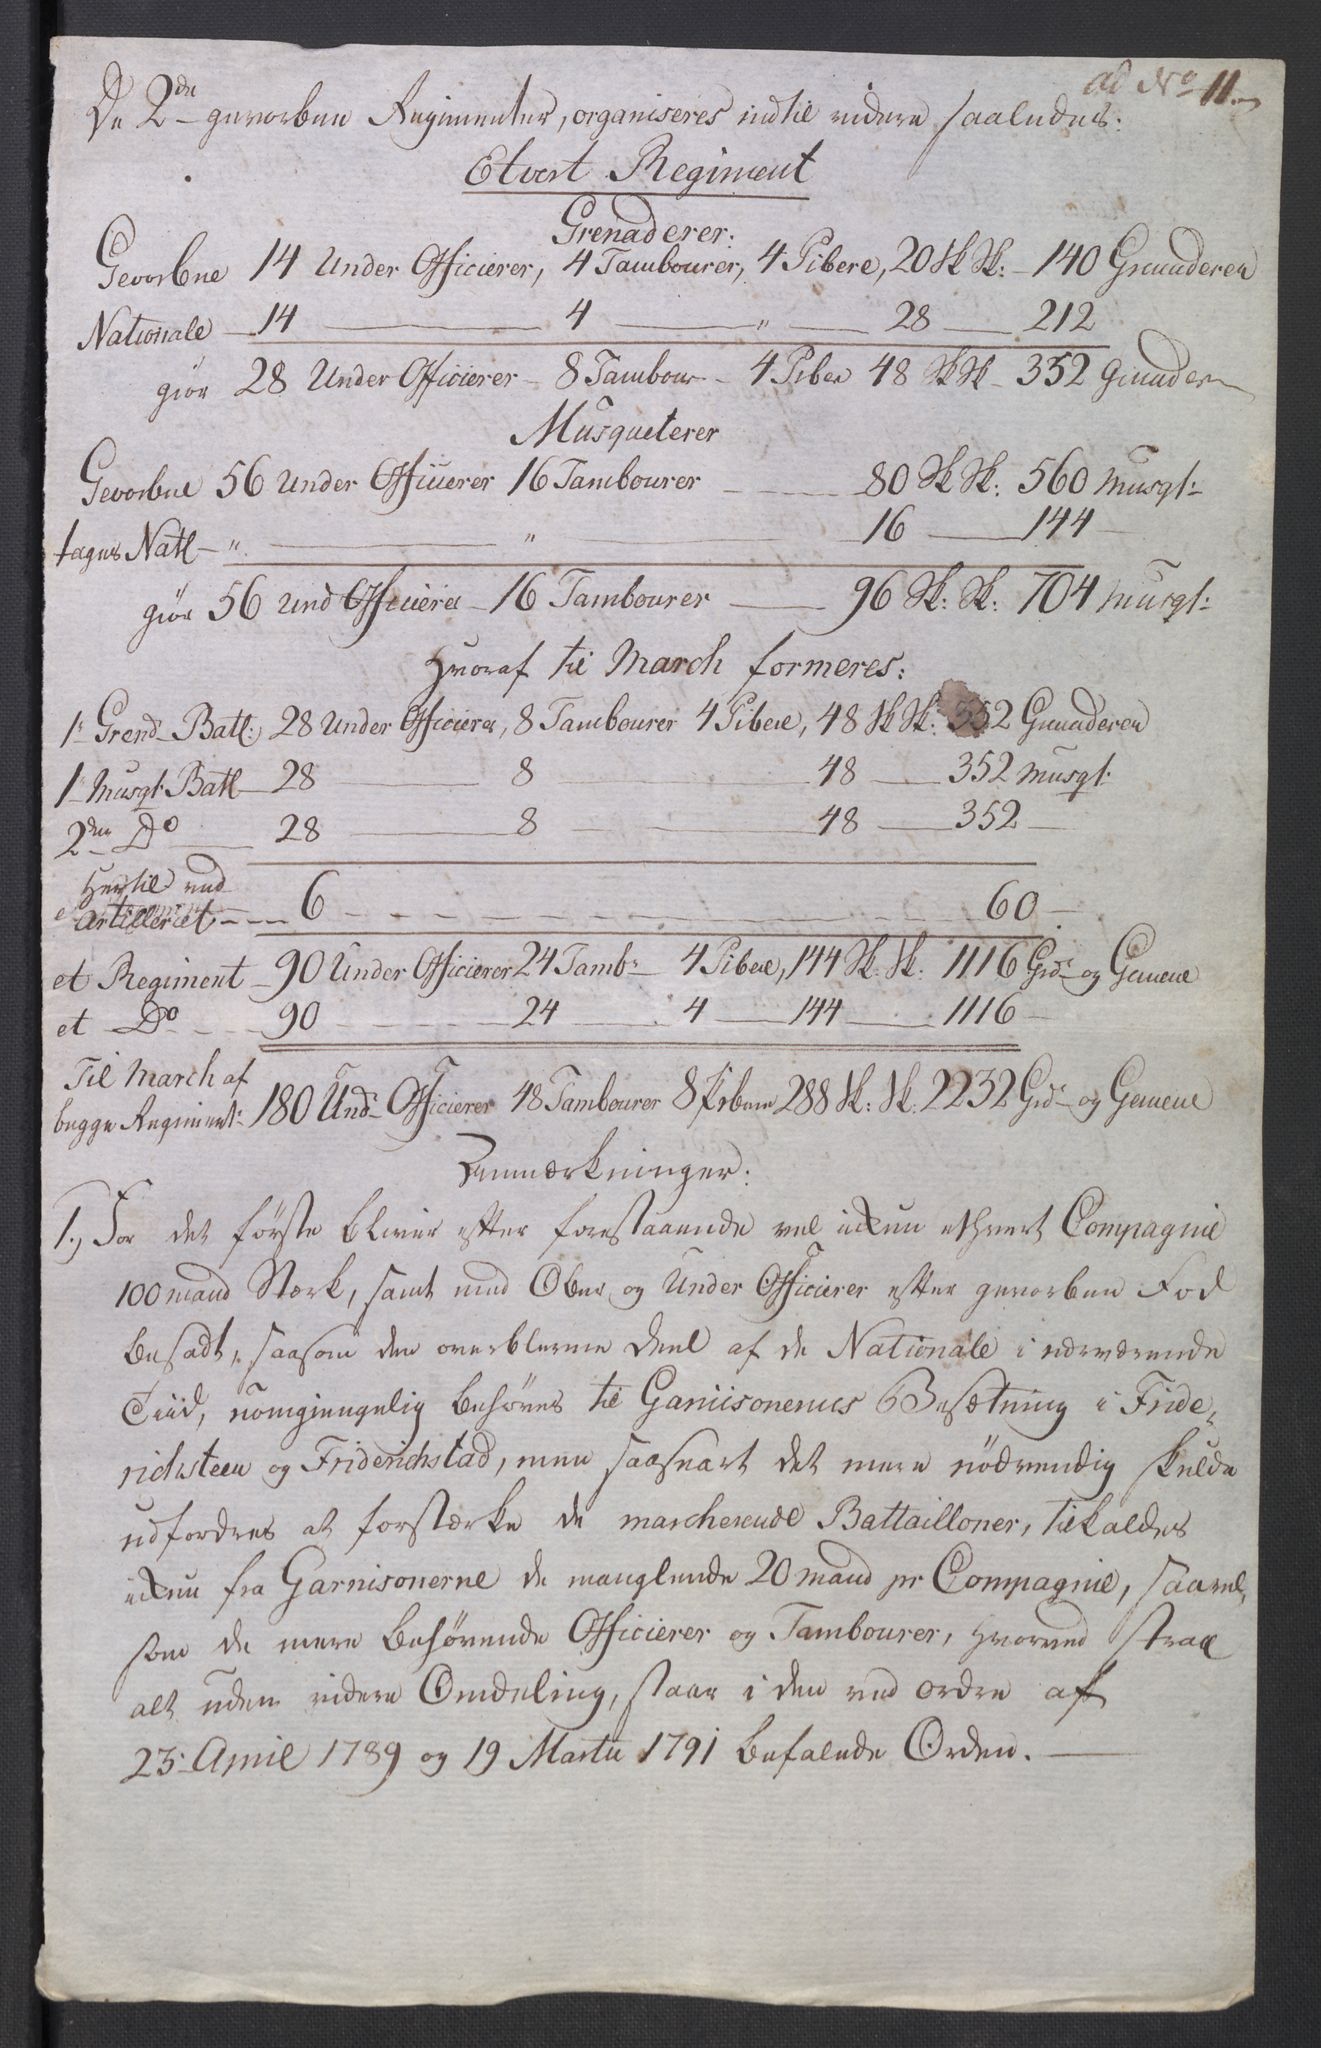 ad No 11.
De 2de gevorbne Regimenter, organiseres indtil videre saaledes:
Etvert Regiment
Grenaderer:
Gevorbne 14 Under Officierer, 4 Tambourer, 4 Pibere, 20 Sk Sk: 140 Grenaderer
Nationale 14 — 4 — " — 28 — 212
giør 28 Under Officierer 8 Tambour 4 Piber 48 Sk Sk 352 Grenaderer
Musqueterer
Gevorbne 56 Under Officierer 16 Tambourer — 80 Sk Sk: 560 Musqt:
tages Natl " — " — 16 — 144
giør 56 Und Officierer 16 Tambourer — 96 Sk: Sk: 704 Musqt:
Hvoraf til March formeres:
1. Grend Batl: 28 Under Officierer, 8 Tambourer 4 Pibere, 48 Sk Sk: 352 Grenaderer
1. Musqt: Batl 28 — 8 — 48 — 352 Musqt:
2den Do — 28 — 8 — 48 — 352 —
Hertil ved
Artilleriet — 6 — 60 —
et Regiment 90 Under Officierer 24 Tambr 4 Pibere, 144 Sk: Sk: 1116 Grd: og Gemene
et Do — 90 — 24 — 4 — 144 — 1116 —
Til March af
begge Regiment: 180 Und Officierer 48 Tambourer 8 Pibere 288 Sk: Sk: 2232 Grd: og Gemene
Anmærkninger:
1.) For det første bliver efter forestaaende vel ikkun ethvert Compagnie
100 mand Stærk, samt med Ober og Under Officierer efter gevorben Fod
besadt, saasom den overblevne Deel af de Nationale i nærværende
Tiid, uomgiengelig behøves til Garnisonernes Besætning i Fride-
richsteen og Friderichstad, men saasnart det mere nödvendig skulde
udfordres at forstærke de marcherende Battailloner, tilkaldes
ikkun fra Garnisonerne de manglende 20 mand pr Compagnie, saavel
som de mere behøvende Officierer og Tambourer, hvorved strax
alt uden videre Omdeling, staar i den ved ordre af
23. April 1789 og 19 Martii 1791 befalede Orden. —